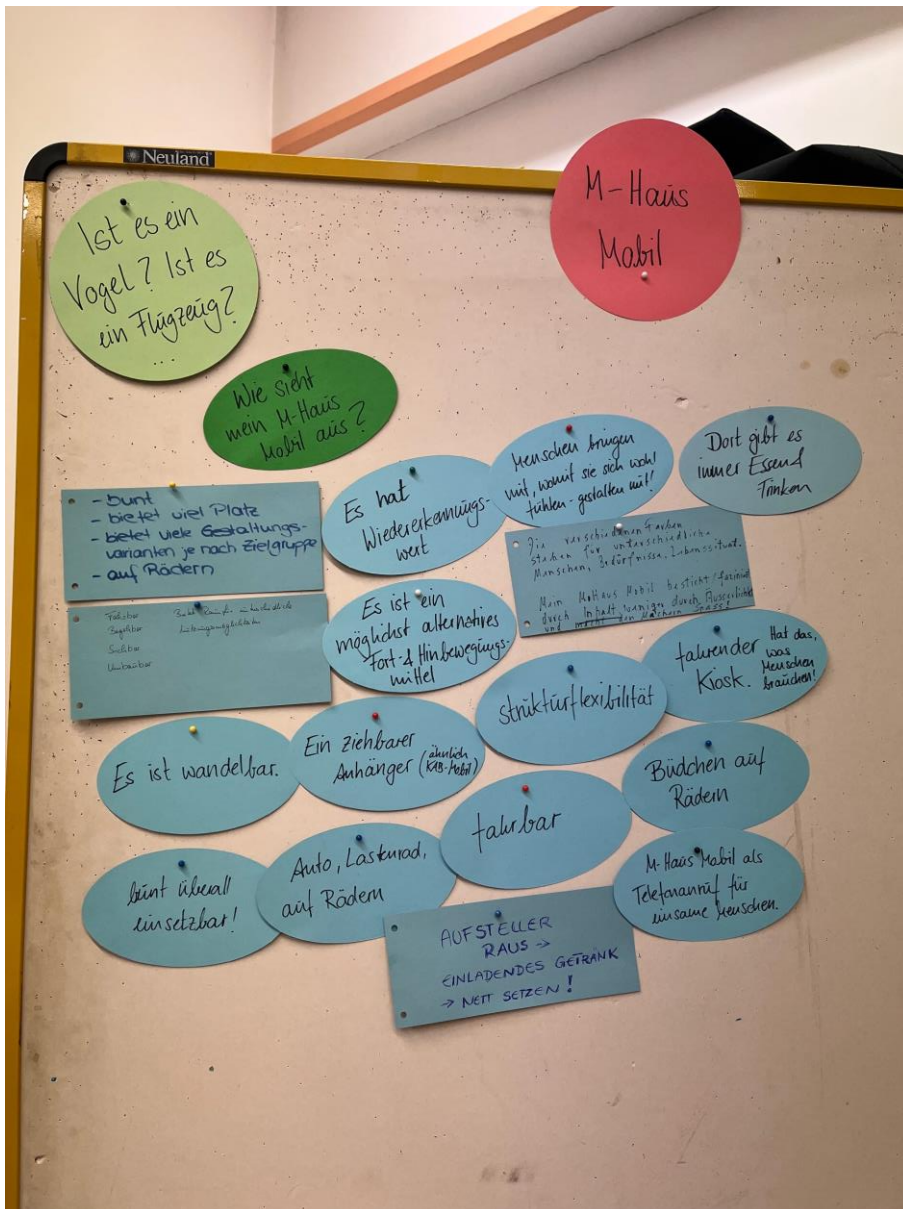 Neuland
Ist es ein
Vogel? Ist es
ein Flugzeug?
...
M-Haus
Mobil
Wie sieht
mein M-Haus
Mobil aus?
- bunt
- bietet viel Platz
- bietet viele Gestaltungs-
varianten je nach Zielgruppe
- auf Rädern
Es hat
Wiedererkennungs-
wert
Menschen bringen
mit, womit sie sich wohl
fühlen - gestalten mit!
Dort gibt es
immer Essen &
Trinken
Die verschiedenen Farben
stehen für unterschiedliche
Menschen, Bedürfnisse, Lebenssituat.
Mein MoHaus Mobil besticht/
durch Inhalt, weniger durch
und macht den Machern Spass!
Fahrbar
Umbaubar
Es ist ein
möglichst alternatives
Fort- & Hinbewegungs-
mittel
strukturflexibilität
fahrender
Kiosk.
Hat das,
was
Menschen
brauchen!
Es ist wandelbar.
Ein ziehbarer
Anhänger (ähnlich
KAB-Mobil)
fahrbar
Büdchen auf
Rädern
bunt überall
einsetzbar!
Auto, Lastenrad,
auf Rädern
M-Haus Mobil als
Telefonanruf für
einsame Menschen.
AUFSTELLER
RAUS →
EINLADENDES GETRÄNK
→ NETT SETZEN!